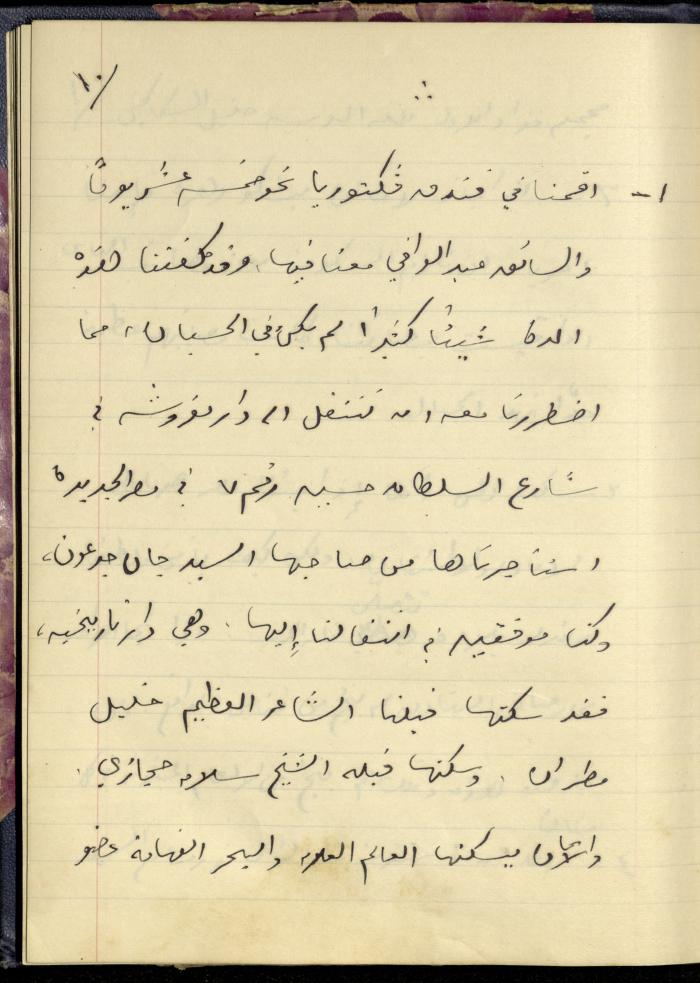 ١٠/
١- اقمنا في فندق ڤكتوريا نحو خمسة عشر يومًا
والسائق عبد الوافي معنا فيها، وقد كلفتنا هذه
المدة شيئًا كثيرًا لم يكن في الحسبان، مما
اضطررنا معه ان ننتقل الى دار مفروشة في
شارع السلطان حسين رقم ٧ في مصر الجديدة
استأجرناها من صاحبها السيد جان جدعون،
وكنا موفقين في انتقالنا إليها. وهي دار تاريخية،
فقد سكنها قبلنا الشاعر العظيم خليل
مطران. وسكنها قبله الشيخ سلامه حجازي.
والآن يسكنها العالم العلامه والبحر الفهامة عضو